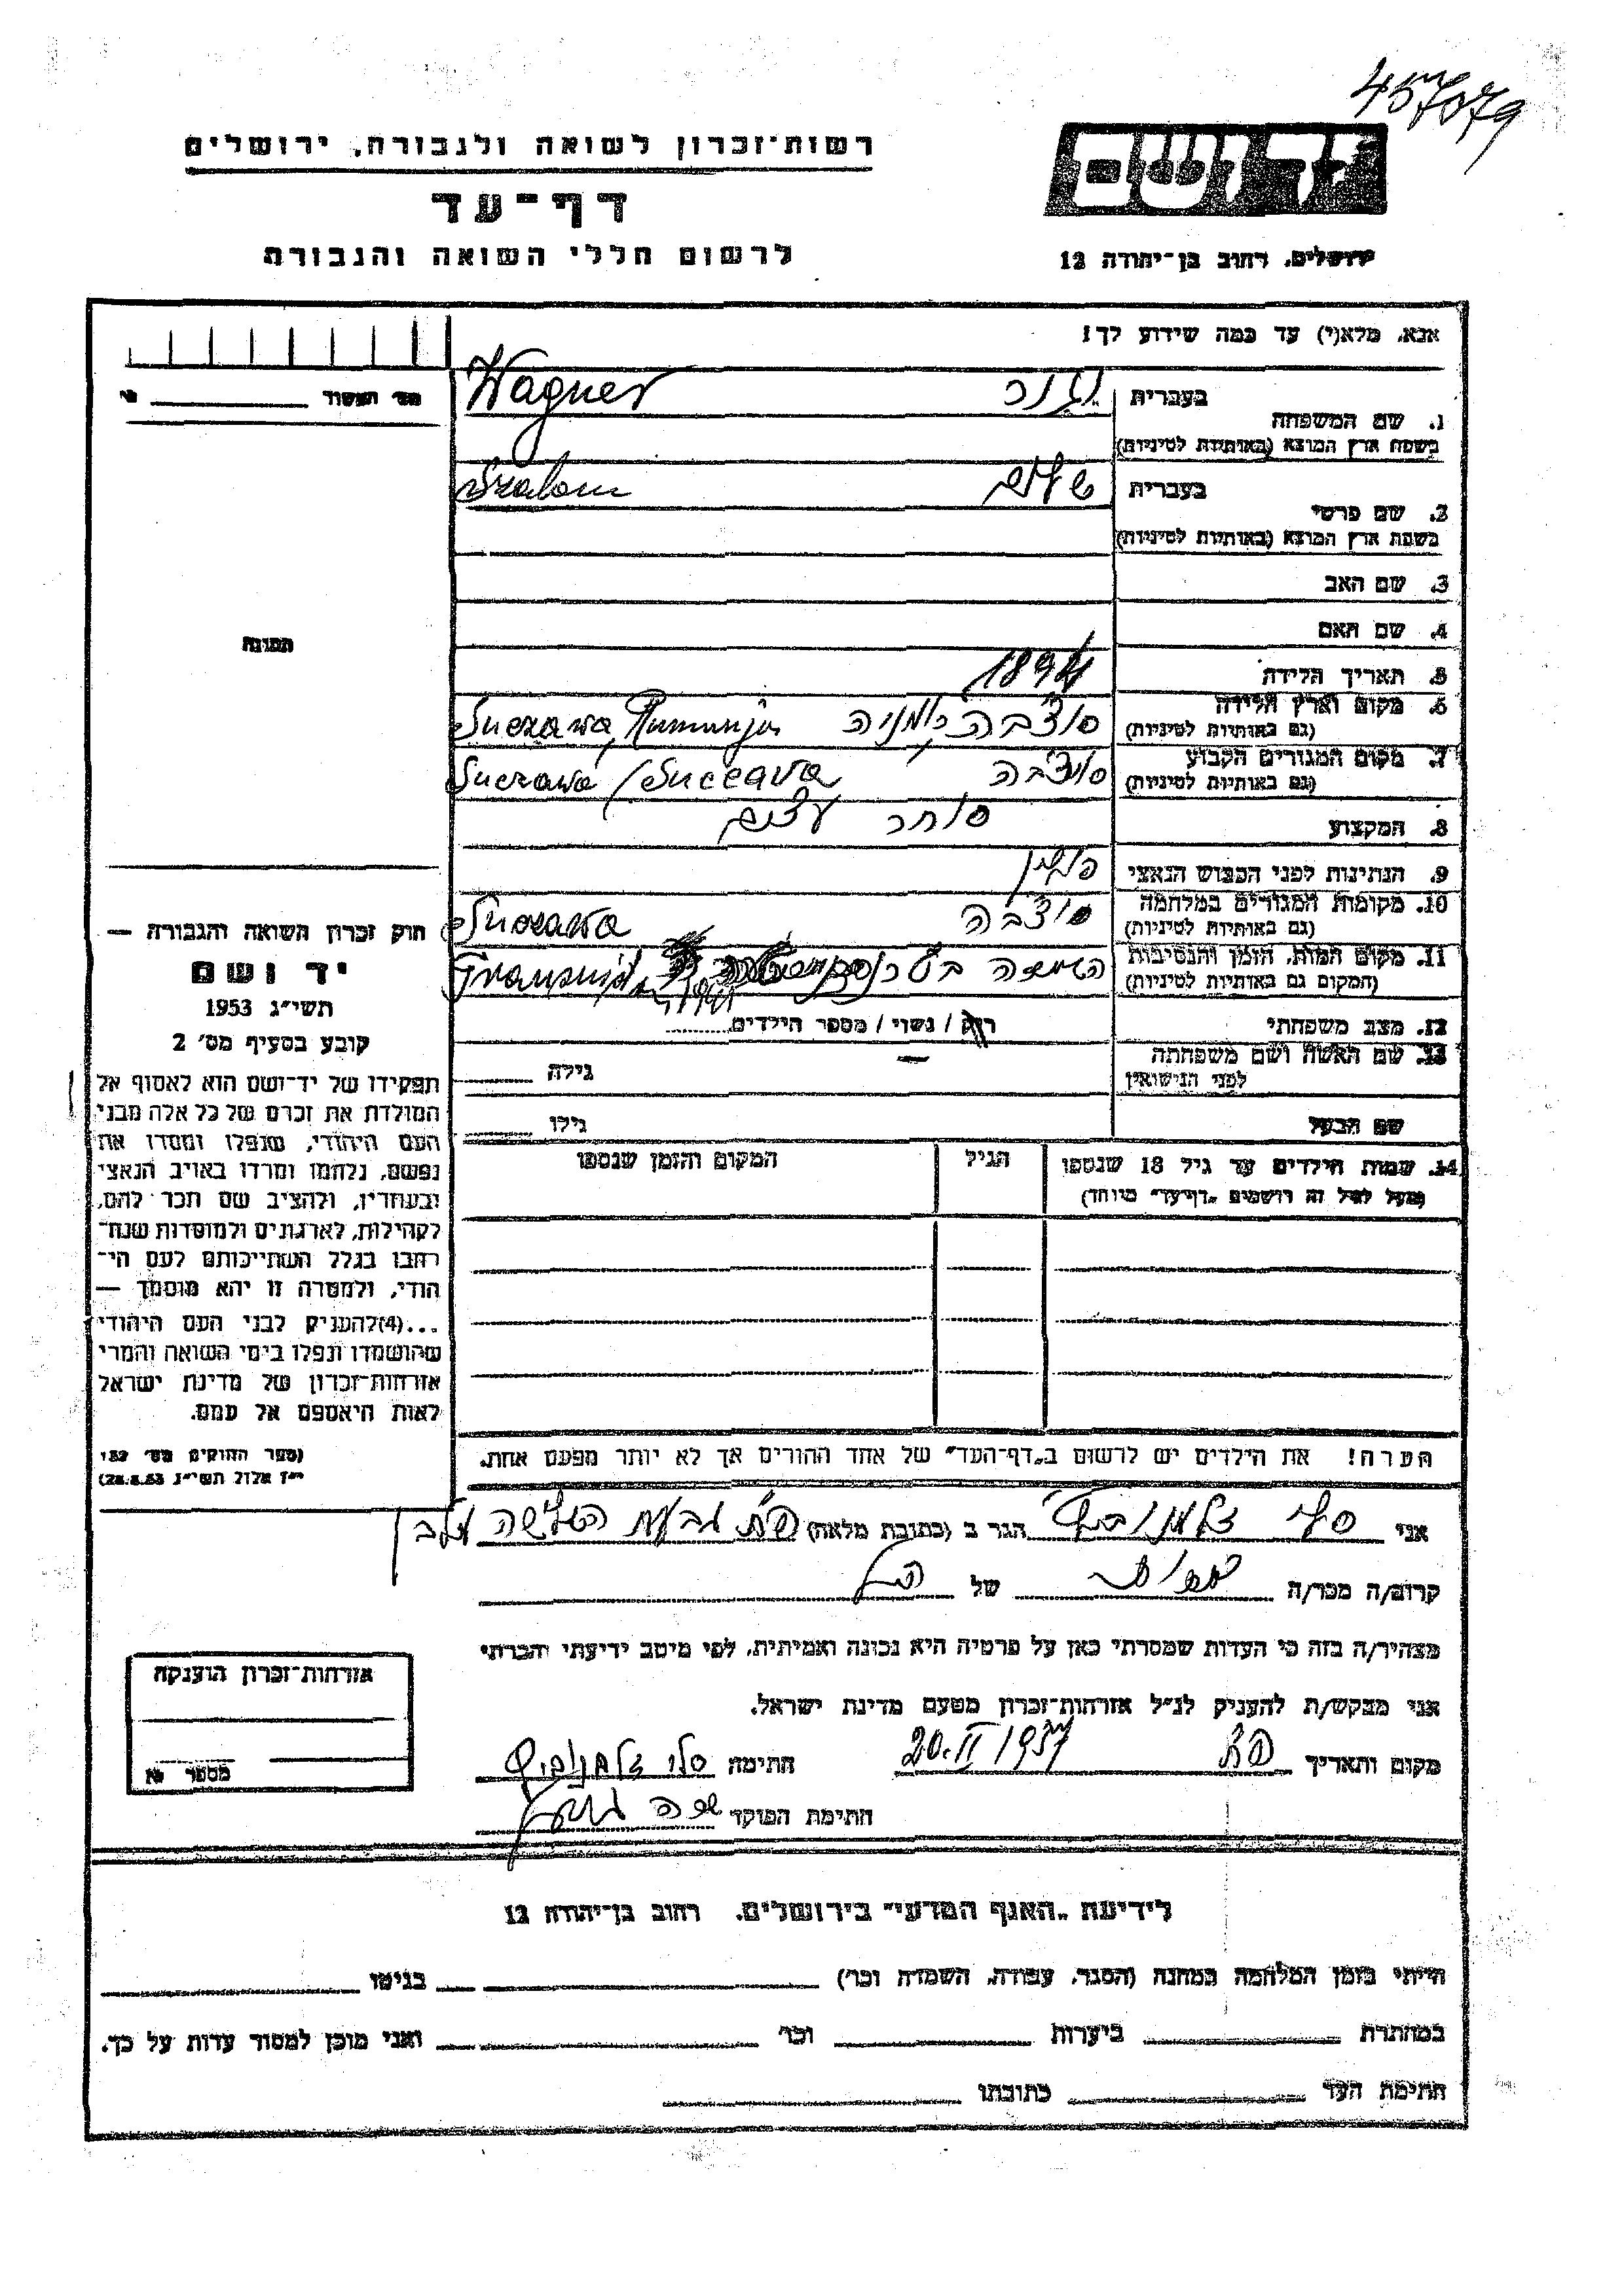 457079
רשות־זכרון לשואה ולגבורה, ירושלים
דף־עד
לרשום חללי השואה והגבורה
יד ושם
ירושלים, רחוב בן־יהודה 12
אנא, מלא(י) עד כמה שידוע לך!
1. שם המשפחה בעברית וגנר
בשפת ארץ המוצא (באותיות לטיניות) Wagner
2. שם פרטי בעברית שלום
בשפת ארץ המוצא (באותיות לטיניות) Szalom
3. שם האב
4. שם האם
5. תאריך הלידה 1894
6. מקום וארץ הלידה סוצ'בה רומניה Suczawa, Rumunja
(גם באותיות לטיניות)
7. מקום המגורים הקבוע סוצ'בה Suczawa/Suceava
(גם באותיות לטיניות)
8. המקצוע סוחר עצים
9. הנתינות לפני הכבוש הנאצי
10. מקומות המגורים במלחמה סוצ'בה Suczawa
(גם באותיות לטיניות)
11. מקום המות, הזמן והנסיבות
(המקום גם באותיות לטיניות)
12. מצב משפחתי רוק / נשוי / מספר הילדים
13. שם האשה ושם משפחתה — גילה
לפני הנישואין
שם הבעל גילו
14. שמות הילדים עד גיל 18 שנספו הגיל המקום והזמן שנספו
(מעל לגיל זה רושמים "דף־עד" מיוחד)
הערה! את הילדים יש לרשום ב"דף־העד" של אחד ההורים אך לא יותר מפעם אחת.
מס'
התמונה
חוק זכרון השואה והגבורה —
יד ושם
תשי"ג 1953
קובע בסעיף מס' 2
תפקידו של יד־ושם הוא לאסוף אל
המולדת את זכרם של כל אלה מבני
העם היהודי, שנפלו ומסרו את
נפשם, נלחמו ומרדו באויב הנאצי
ובעוזריו, ולהציב שם וזכר להם,
לקהילות, לארגונים ולמוסדות שנח־
רבו בגלל השתייכותם לעם הי־
הודי, ולמטרה זו יהא מוסמך —
...(4)להעניק לבני העם היהודי
שהושמדו ונפלו בימי השואה והמרי
אזרחות־זכרון של מדינת ישראל
לאות היאספם אל עמם.
(ספר החוקים מס' 132
י"ז אלול תשי"ג 28.8.53)
אני סלי זלמנוביץ הגר ב (כתובת מלאה) פ"ת גבעת השלשה
קרוב/ה מכר/ה של הנ"ל
מצהיר/ה בזה כי העדות שמסרתי כאן על פרטיה היא נכונה ואמיתית, לפי מיטב ידיעתי והכרתי
אני מבקש/ת להעניק לנ"ל אזרחות־זכרון מטעם מדינת ישראל.
מקום ותאריך פ"ת 20.II 1957 חתימה סלי זלמנוביץ
חתימת הפוקד
אזרחות־זכרון הוענקה
מספר
לידיעת "האגף המדעי" בירושלים, רחוב בן־יהודה 12
הייתי בזמן המלחמה במחנה (הסגר, עבודה, השמדה וכו') בגיטו
במחתרת ביערות וכו' ואני מוכן למסור עדות על כך.
חתימת העד כתובתו